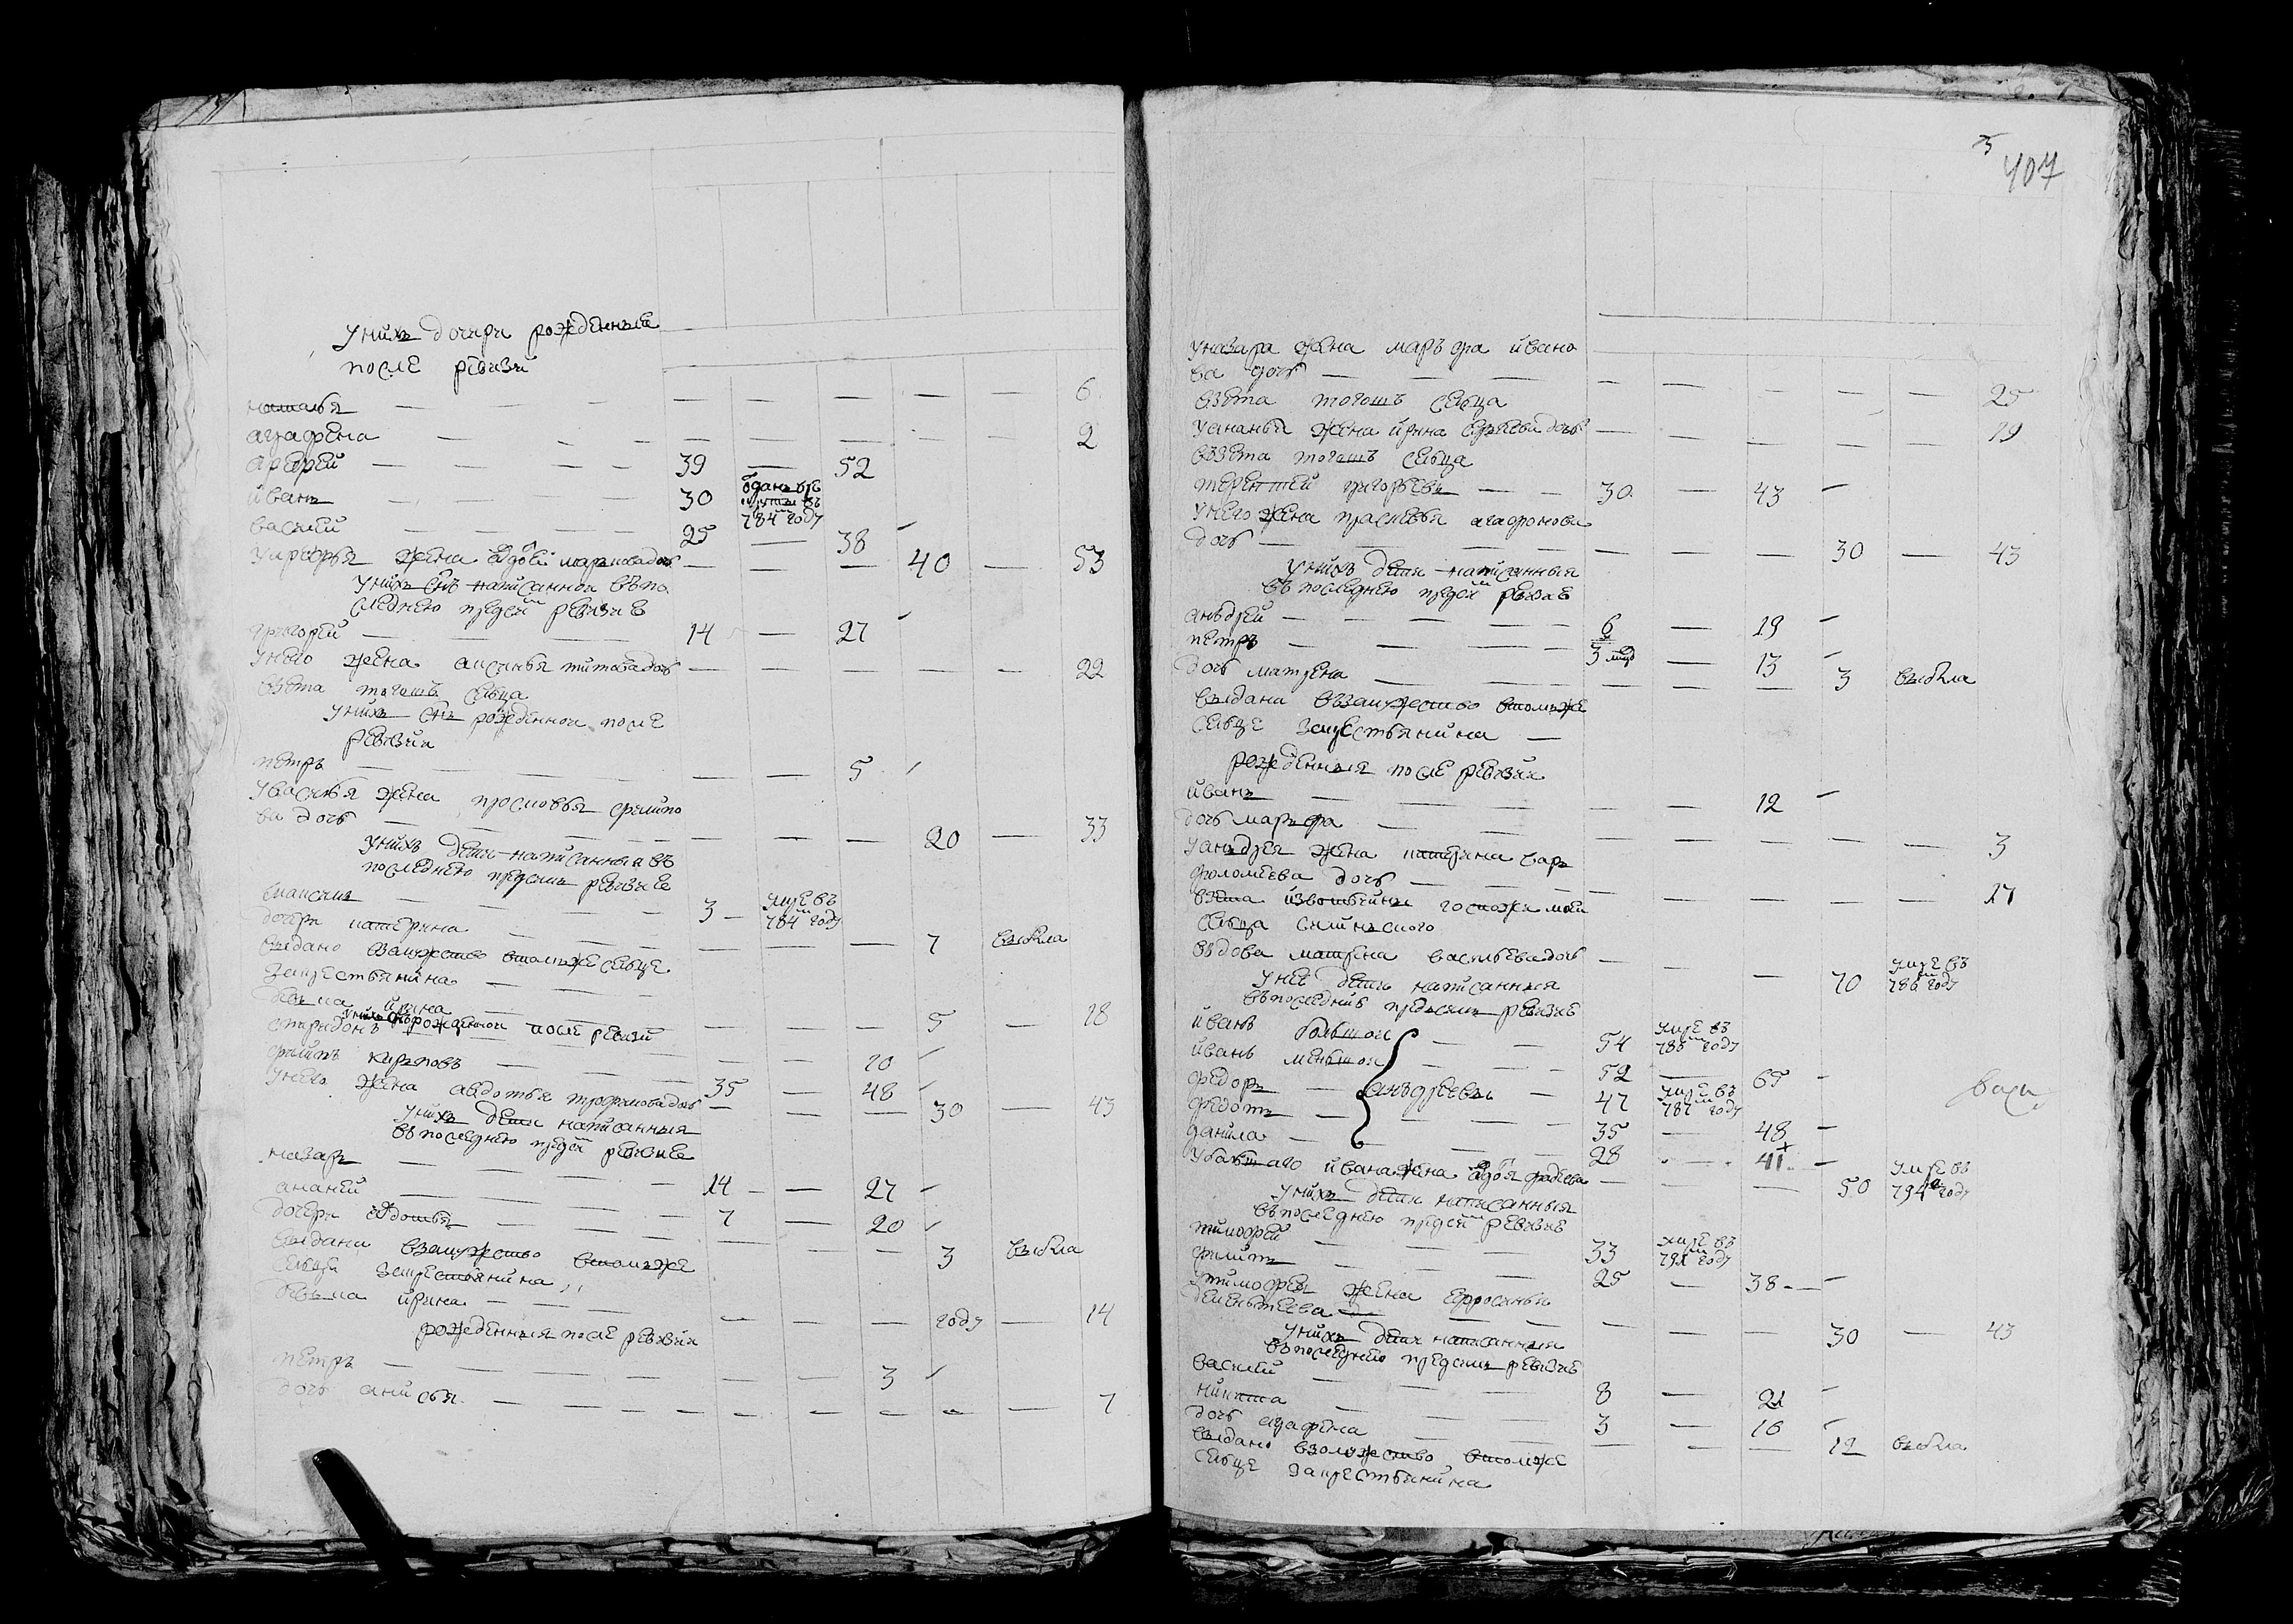 у нихъ дочери рожденные
после ревизи
наталья — — — — — — — — 6
агафена — — — — — — — — 2
арефей — — — 39 — 52
йванъ — — — 30 отданъ врекруты въ 784м году
василей — — — 25 — 38
у арефья жена авдотья марковадочь — — — 40 — 53
у нихъ снъ написанной въ по
следнею пред сей ревизие
григорей — — 14 — 27
у него жена аксинья титовадочь — — — — — 22
взета тогошъ селца
у нихъ снъ рожденной после
ревизии
петръ — — — — — 5
у василья жена просковья филипо
ва дочь — — — — — 20 — 33
у нихъ дети написанныя въ
последнею предсимъ ревизие
максимъ — — 3 — умре въ 784м году
дочери катерина — — — — — 7 выбыла
выдано взамужство втомъже селце
за крестьянина
девка ирина — — — — 5 — 18
у нихъ снъ рожденной после ревизи
спиридонъ — — — — 10
филипъ карповъ — — 35 — 48
у него жена авдотья трофимовадочь — — — 30 — 43
у нихъ дети написанныя
въ последнею пред сей ревизие
назаръ — — 14 — — 27
ананей — — 7 — 20
дочери авдотья — — — — 3 выбыла
выдана взамужство втомъже
селце за крестьянина
девка ирина — — — — — году — 14
рожденныя после ревизии
петръ — — — — — 3
дочь анисья — — — — — — — 7
5
407
у назара жена марьфа ивано
ва дочь — — — — — — — — 25
взета тогошъ селца
у ананьи жена ирина сергеева дочь — — — — — 19
взета тогошъ селца
терентей григорьевъ — — 30 — 43
у него жена прасковья агафонова
дочь — — — — — — — 30 — 43
у нихъ дети написанныя
въ последнею пред сей ревизие
андрей — — — — 6 — 19
петръ — — — 3 мцд — 13
дочь матрена — — — — — 3 выбыла
выдана взамужство втомъже
селце за крестьянина —
рожденныя после ревизии
иванъ — — — — — 12
дочь марьфа — — — — — — — 3
у андрея жена катерина вар
фоломеева дочь — — — — — — — 27
взята извотчины госпожи моей
селца
вдова матрена васильевадочь — — — 70 умре въ 786м году
у нее дети написанныя
въ последние предъсимъ ревизие
иванъ большой — — 54 умре въ 788м году
иванъ меньшой — — 52 — 65
федоръ — андреевы — 47 умре въ 787м году
федотъ — — — 35 — 48
данила — — — 28 — 41
у большаго ивана жена авдотья фадеева — — — 50 умре въ 794м году
у нихъ дети написанныя
въ последнею пред сей ревизие
тимофей — — — 33 умре въ 791м году
филипъ — — — 25 — 38
у тимофея жена афросинья
дементеева д — — — — — — 30 — 43
у нихъ дети написанныя
въ последнею предсимъ ревизие
василей — — — 8 — 21
никита — — — 3 — 16
дочь агафена — — — — — 12 выбыла
выдано взамужество втомъже
селце за крестьянина